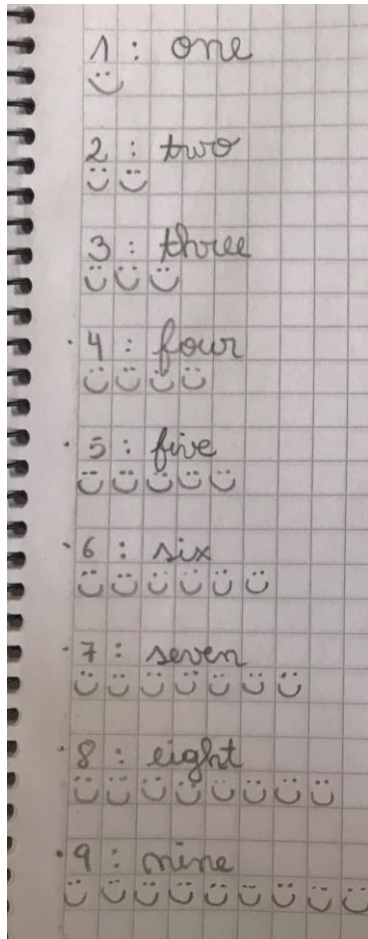 1 : one
2 : two
3 : three
4 : four
5 : five
6 : six
7 : seven
8 : eight
9 : nine